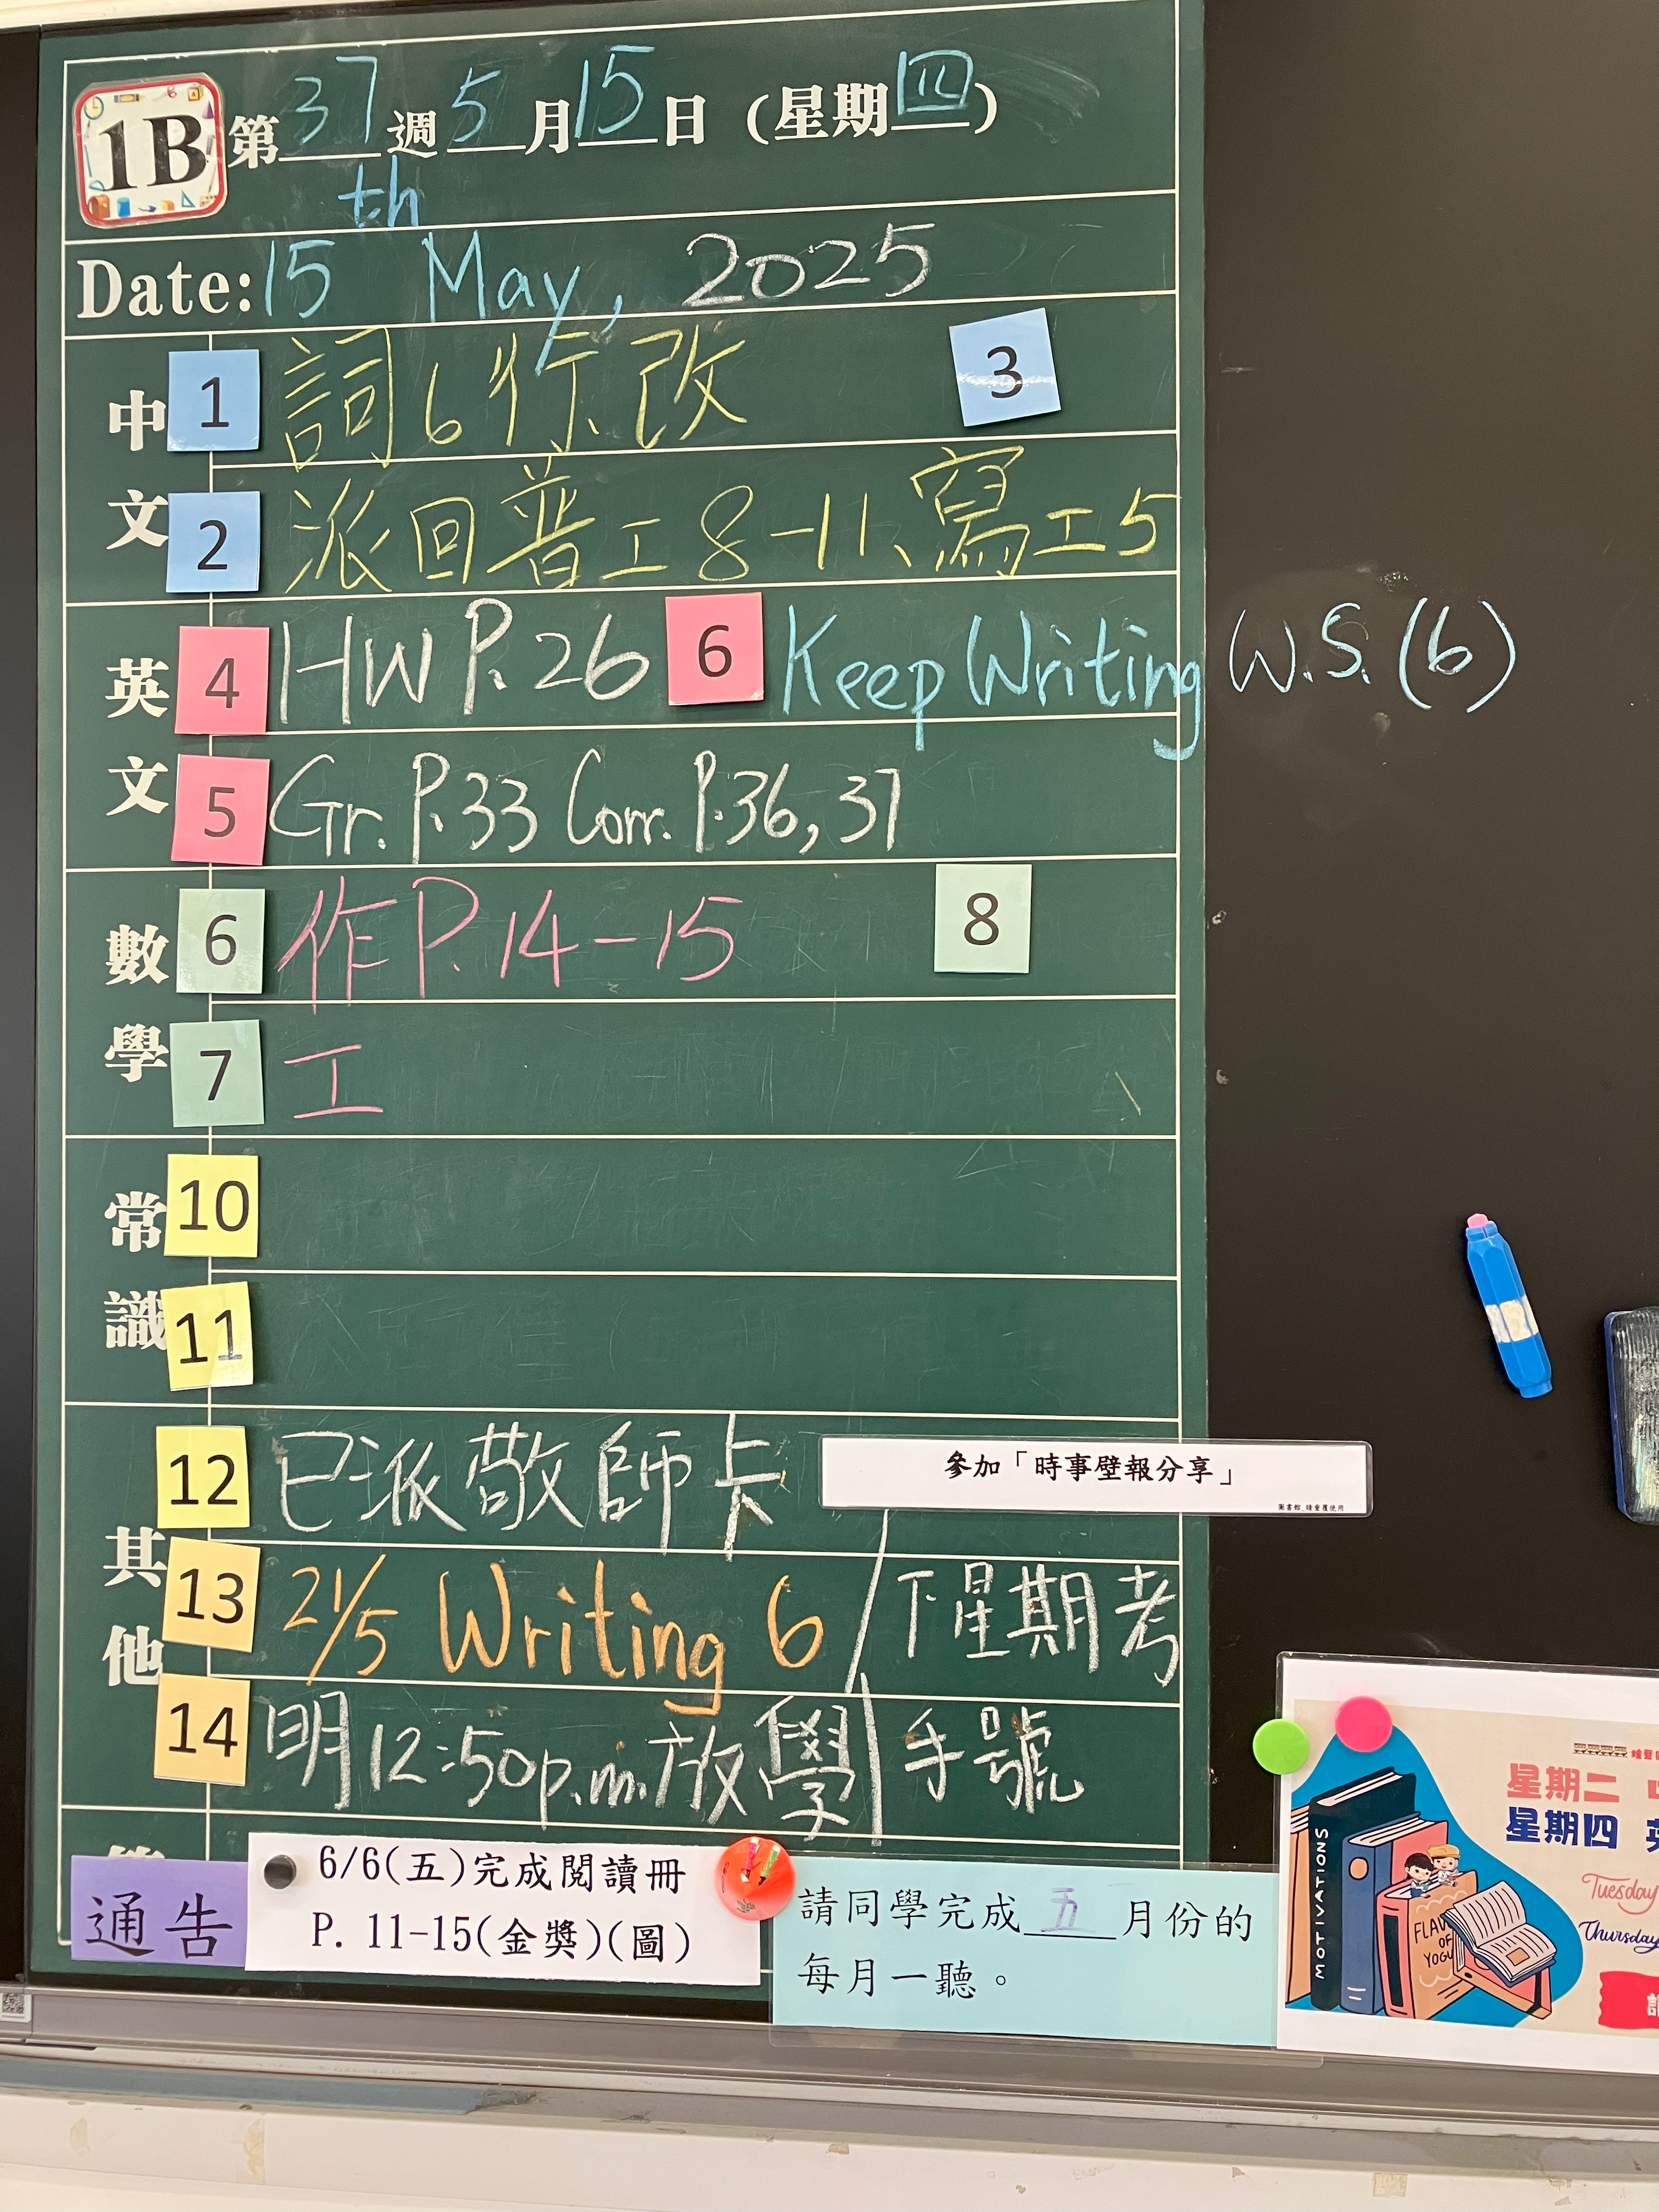 1B 第37週5月15日(星期四)
th
Date: 15 May, 2025
中文
1 詞6作改 3
2 派回普工8-11、寫工5
英文
4 HW P.26 6 Keep Writing W.S.(6)
5 Gr. P.33 Corr. P.36,37
數學
6 作P.14-15 8
7 工
常識
10
11
其他
12 已派敬師卡 參加「時事壁報分享」
圖書館_請重覆使用
13 21/5 Writing 6 / 下星期考
14 明12:50p.m.放學 | 手號
通告
6/6(五)完成閱讀冊
P. 11-15(金獎)(圖)
請同學完成五月份的
每月一聽。
MOTIVATIONS
星期二
星期四 英
Tuesday
Thursday